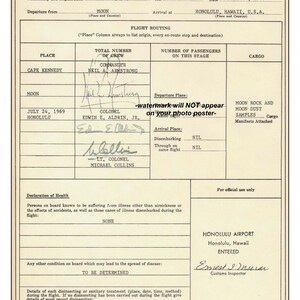 Departure from MOON Arrival at HONOLULU, HAWAII, U.S.A.
(Place and Country) (Place and Country)
FLIGHT ROUTING
("Place" Column always to list origin, every en-route stop and destination)
PLACE
TOTAL NUMBER OF CREW
NUMBER OF PASSENGERS ON THIS STAGE
CARGO
CAPE KENNEDY
COMMANDER
NEIL A. ARMSTRONG
MOON
Departure Place:
-watermark will NOT appear
on your photo poster-
MOON ROCK AND
MOON DUST
SAMPLES Cargo
Manifests Attached
JULY 24, 1969
HONOLULU
COLONEL
EDWIN E. ALDRIN, JR.
Arrival Place:
Disembarking NIL
Through on
same flight NIL
LT. COLONEL
MICHAEL COLLINS
Declaration of Health
For official use only
Persons on board known to be suffering from illness other than airsickness or
the effects of accidents, as well as those cases of illness disembarked during the
flight:
NONE
HONOLULU AIRPORT
Honolulu, Hawaii
ENTERED
Customs Inspector
Any other condition on board which may lead to the spread of disease:
TO BE DETERMINED
Details of each disinsecting or sanitary treatment (place, date, time, method)
during the flight. If no disinsecting has been carried out during the flight give
details of most recent disinsecting: